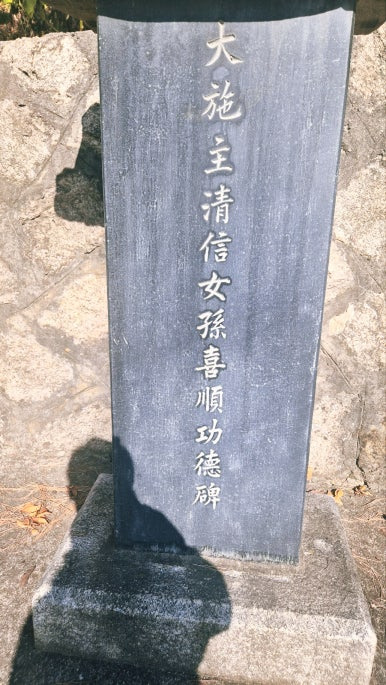 大施主清信女孫喜順功德碑